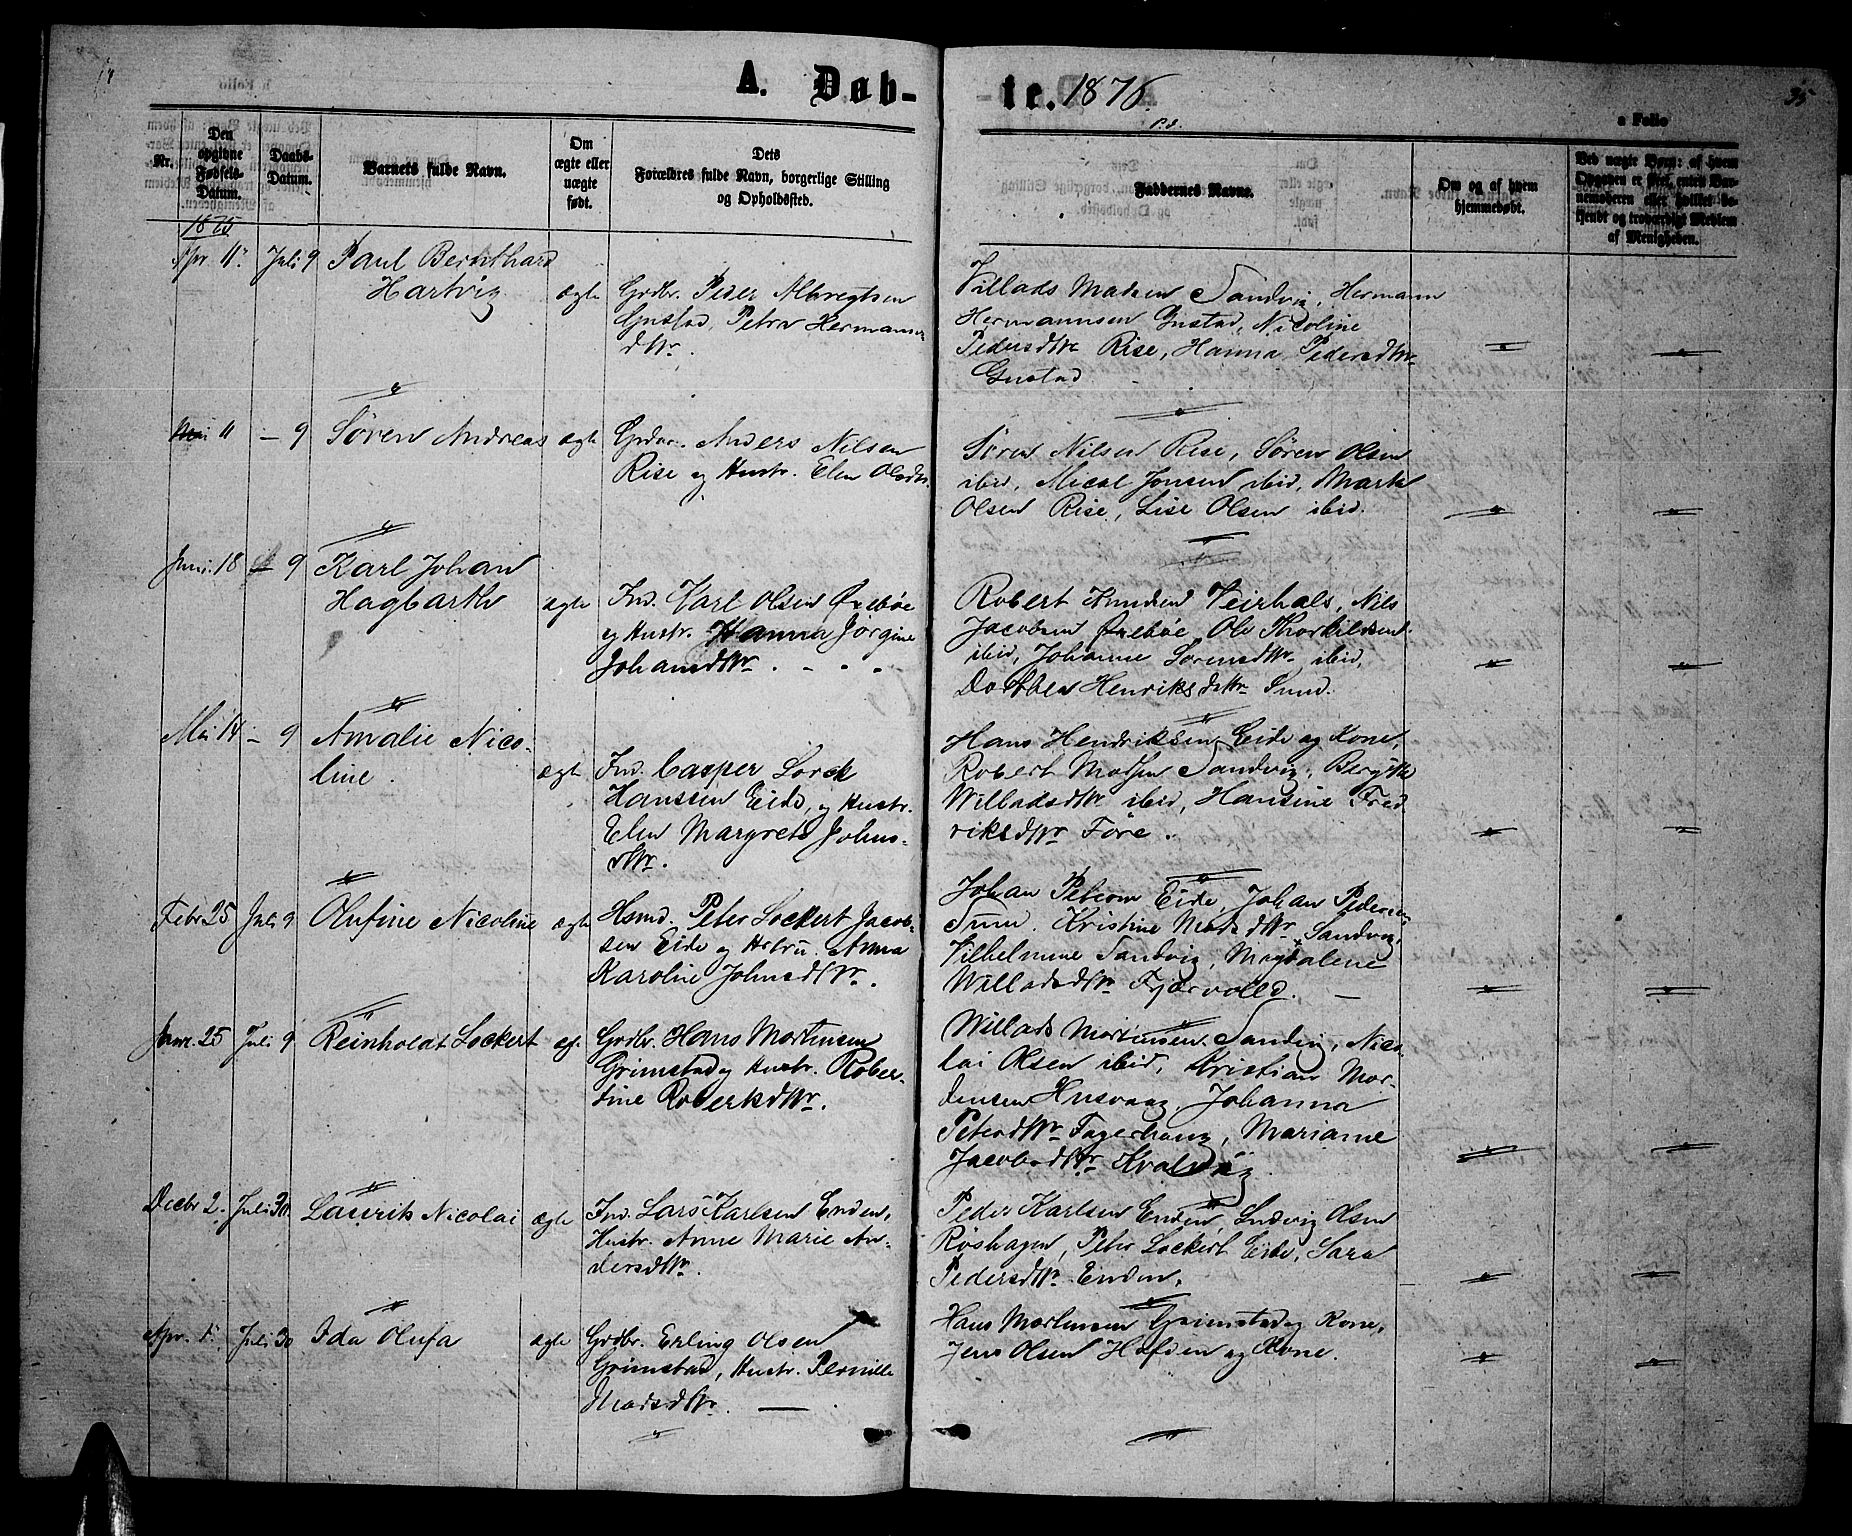 A. Døb-
te. 1876
35
a Folio
Nr.
Den opgivne Fødsels-Datum.
Daabs-Datum.
Barnets fulde Navn.
Om ægte eller uægte født.
Dets Forældres fulde Navn, borgerlige Stilling og Opholdssted.
Faddernes Navne.
Om og af hvem hjemmedøbt.
Ved uægte Børn: af hvem
Opgaven er skeet, enten Bar-
nemoderen eller hvilket be-
kjendt og troværdigt Medlem
af Menigheden.
1875
Apr 11 Juli 9 Paul Bernthard
Hartvig ægte
Grdbr. Peder Albregtsen
Gustad, Petra Hermans
dttr.
Villads Madsen Sandvig, Hermann
Hermannsen Gustad, Nicoline
Pedersdttr Rise, Hanna Pedersdttr
Gustad
Mai 11 - 9 Søren Andreas ægte
Grdbr. Anders Nilsen
Rise og Hustr. Elen Olsdtr.
Søren Nilsen Rise, Søren Olsen
ibid, Mical Jonsen ibid, Marth
Olsen Rise, Lise Olsen ibid.
Juni 18 9 Karl Johan
Hagbarth ægte
Ind. Karl Olsen Øxebøe
og Hustr. Hanna Jørgine
Johansdttr.
Robert Knudsen Veirhals, Nils
Jacobsen Øxebøe, Ole Thorkildsen
ibid, Johanne Sørensdttr ibid,
Dorthea Henriksdttr Sund.
Mai 14 - 9 Amalie Nico-
line. ægte
Ind. Casper Lorck
Hanssen Eide, og Hustr.
Elen Margrete Johns-
dttr.
Hans Hendriksen Eide og Kone,
Robert Madsen Sandvig, Bergitte
Willadsdttr ibid, Hansine Fred-
riksdttr Føre.
Febr 25 Juli 9 Olufine Nicoline ægte
Hsmd. Peter Lockert Jacob-
sen Eide og Hstru. Anna
Karoline Johnsdttr.
Johan Peterson Eide, Johan Pedersen
Sund. Kristine Madsdttr Sandvig,
Vilhelmine Sandvig, Magdalene
Willadsdttr Fjærvolld. -
Janr. 25 Juli 9 Reinholdt Lockert æg.
Grdbr. Hans Mortensen
Grimstad og Hustr. Rober-
tine Robertsdttr.
Willads Mortensen Sandvig, Nico-
lai Olsen ibid, Kristian Mor-
tensen Husvaag, Johanna
Petersdttr Fagerhaug, Marianne
Jacobsdttr Hvalsøig
Decbr 2. Juli 30. Laurits Nicolai ægte
Ind. Lars Karlsen Enden,
Hustr. Anne Marie An-
dersdttr.
Peder Karlsen Enden, Ludvig Olsen
Roshagen, Peter Lockert Eide, Sara
Pedersdttr Enden.
Apr. 1. Juli 30 Ida Olufa ægte
Grdbr. Erling Olsen
Grimstad, Hustr. Pernille
Madsdttr. —
Hans Mortensen Grimstad og Kone,
Jens Olsen Hafden og Kone.